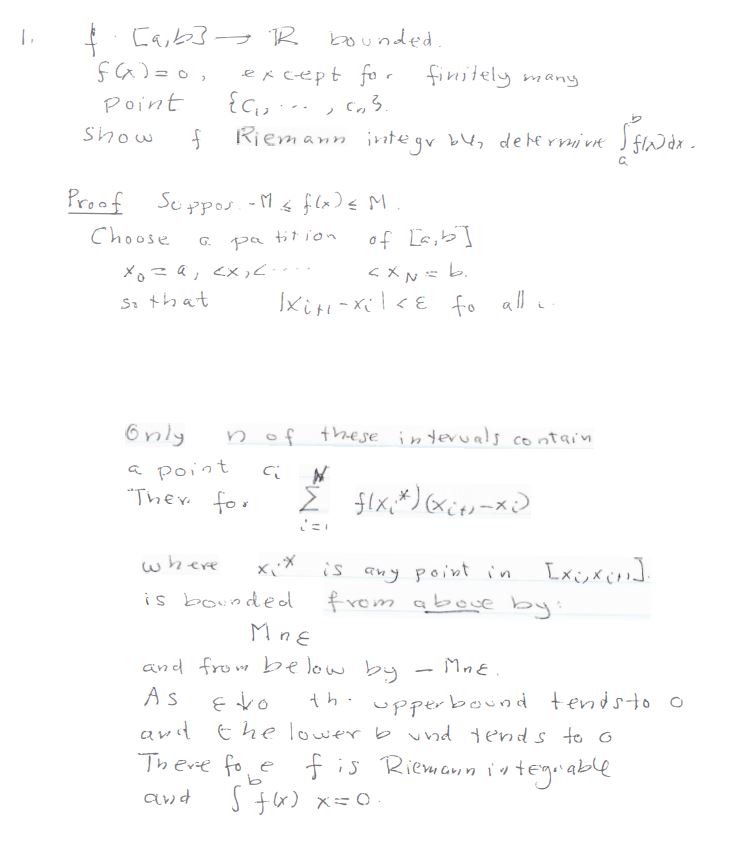 1. f : [a,b] → ℝ bounded.
f(x) = 0, except for finitely many
point {c₁, ... , cₙ}.
show f Riemann integr bly determine ∫ₐᵇ f(x) dx.
Proof Suppos. -M ≤ f(x) ≤ M.
Choose a pa tition of [a,b]
x₀ = a, <x₁<.... <x_N = b.
so that |xᵢ₊₁ - xᵢ| < ε fo all i
Only n of these intervals contain
a point cᵢ
Ther. for Σᵢ₌₁ᴺ f(xᵢ*)(xᵢ₊₁ - xᵢ)
where xᵢ* is any point in [xᵢ,xᵢ₊₁].
is bounded from above by:
Mnε
and from below by - Mnε.
As ε↓0 th. upperbound tends to 0
and the lower b und tends to 0
There fo e f is Riemann integrable
and ∫ᵇ f(x) x = 0.